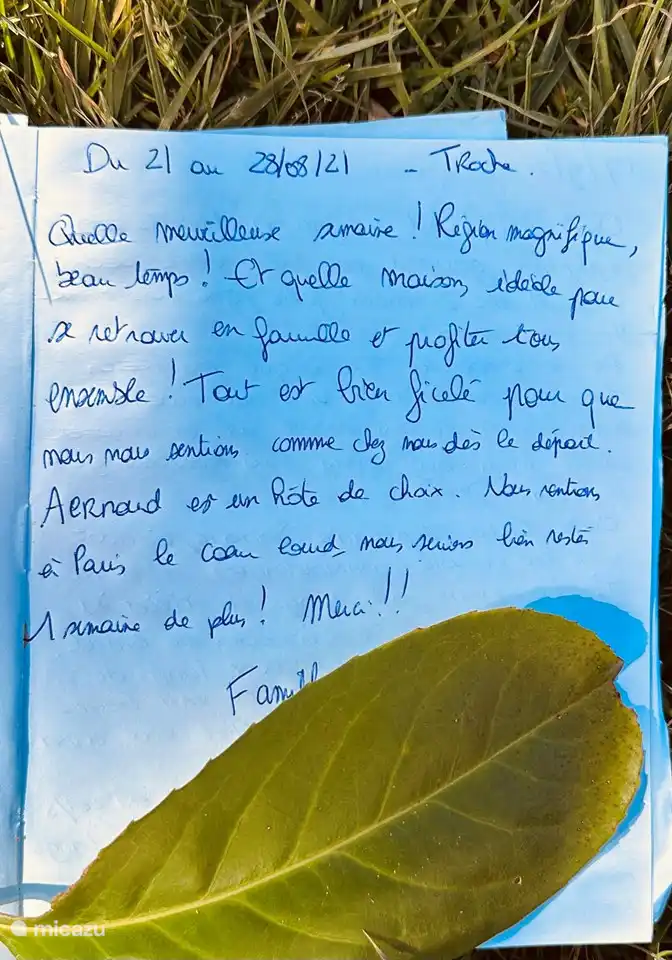 Du 21 au 28/08/21 - TRoche.
Quelle merveilleuse semaine ! Région magnifique,
beau temps ! Et quelle maison, idéale pour
se retrouver en famille et profiter tous
ensemble ! Tout est bien ficelé pour que
nous nous sentions comme chez nous dès le départ.
AERnoud est un hôte de choix. Nous rentrons
à Paris le coeur lourd, nous serions bien restés
1 semaine de plus ! Merci !!
Famill
micazu